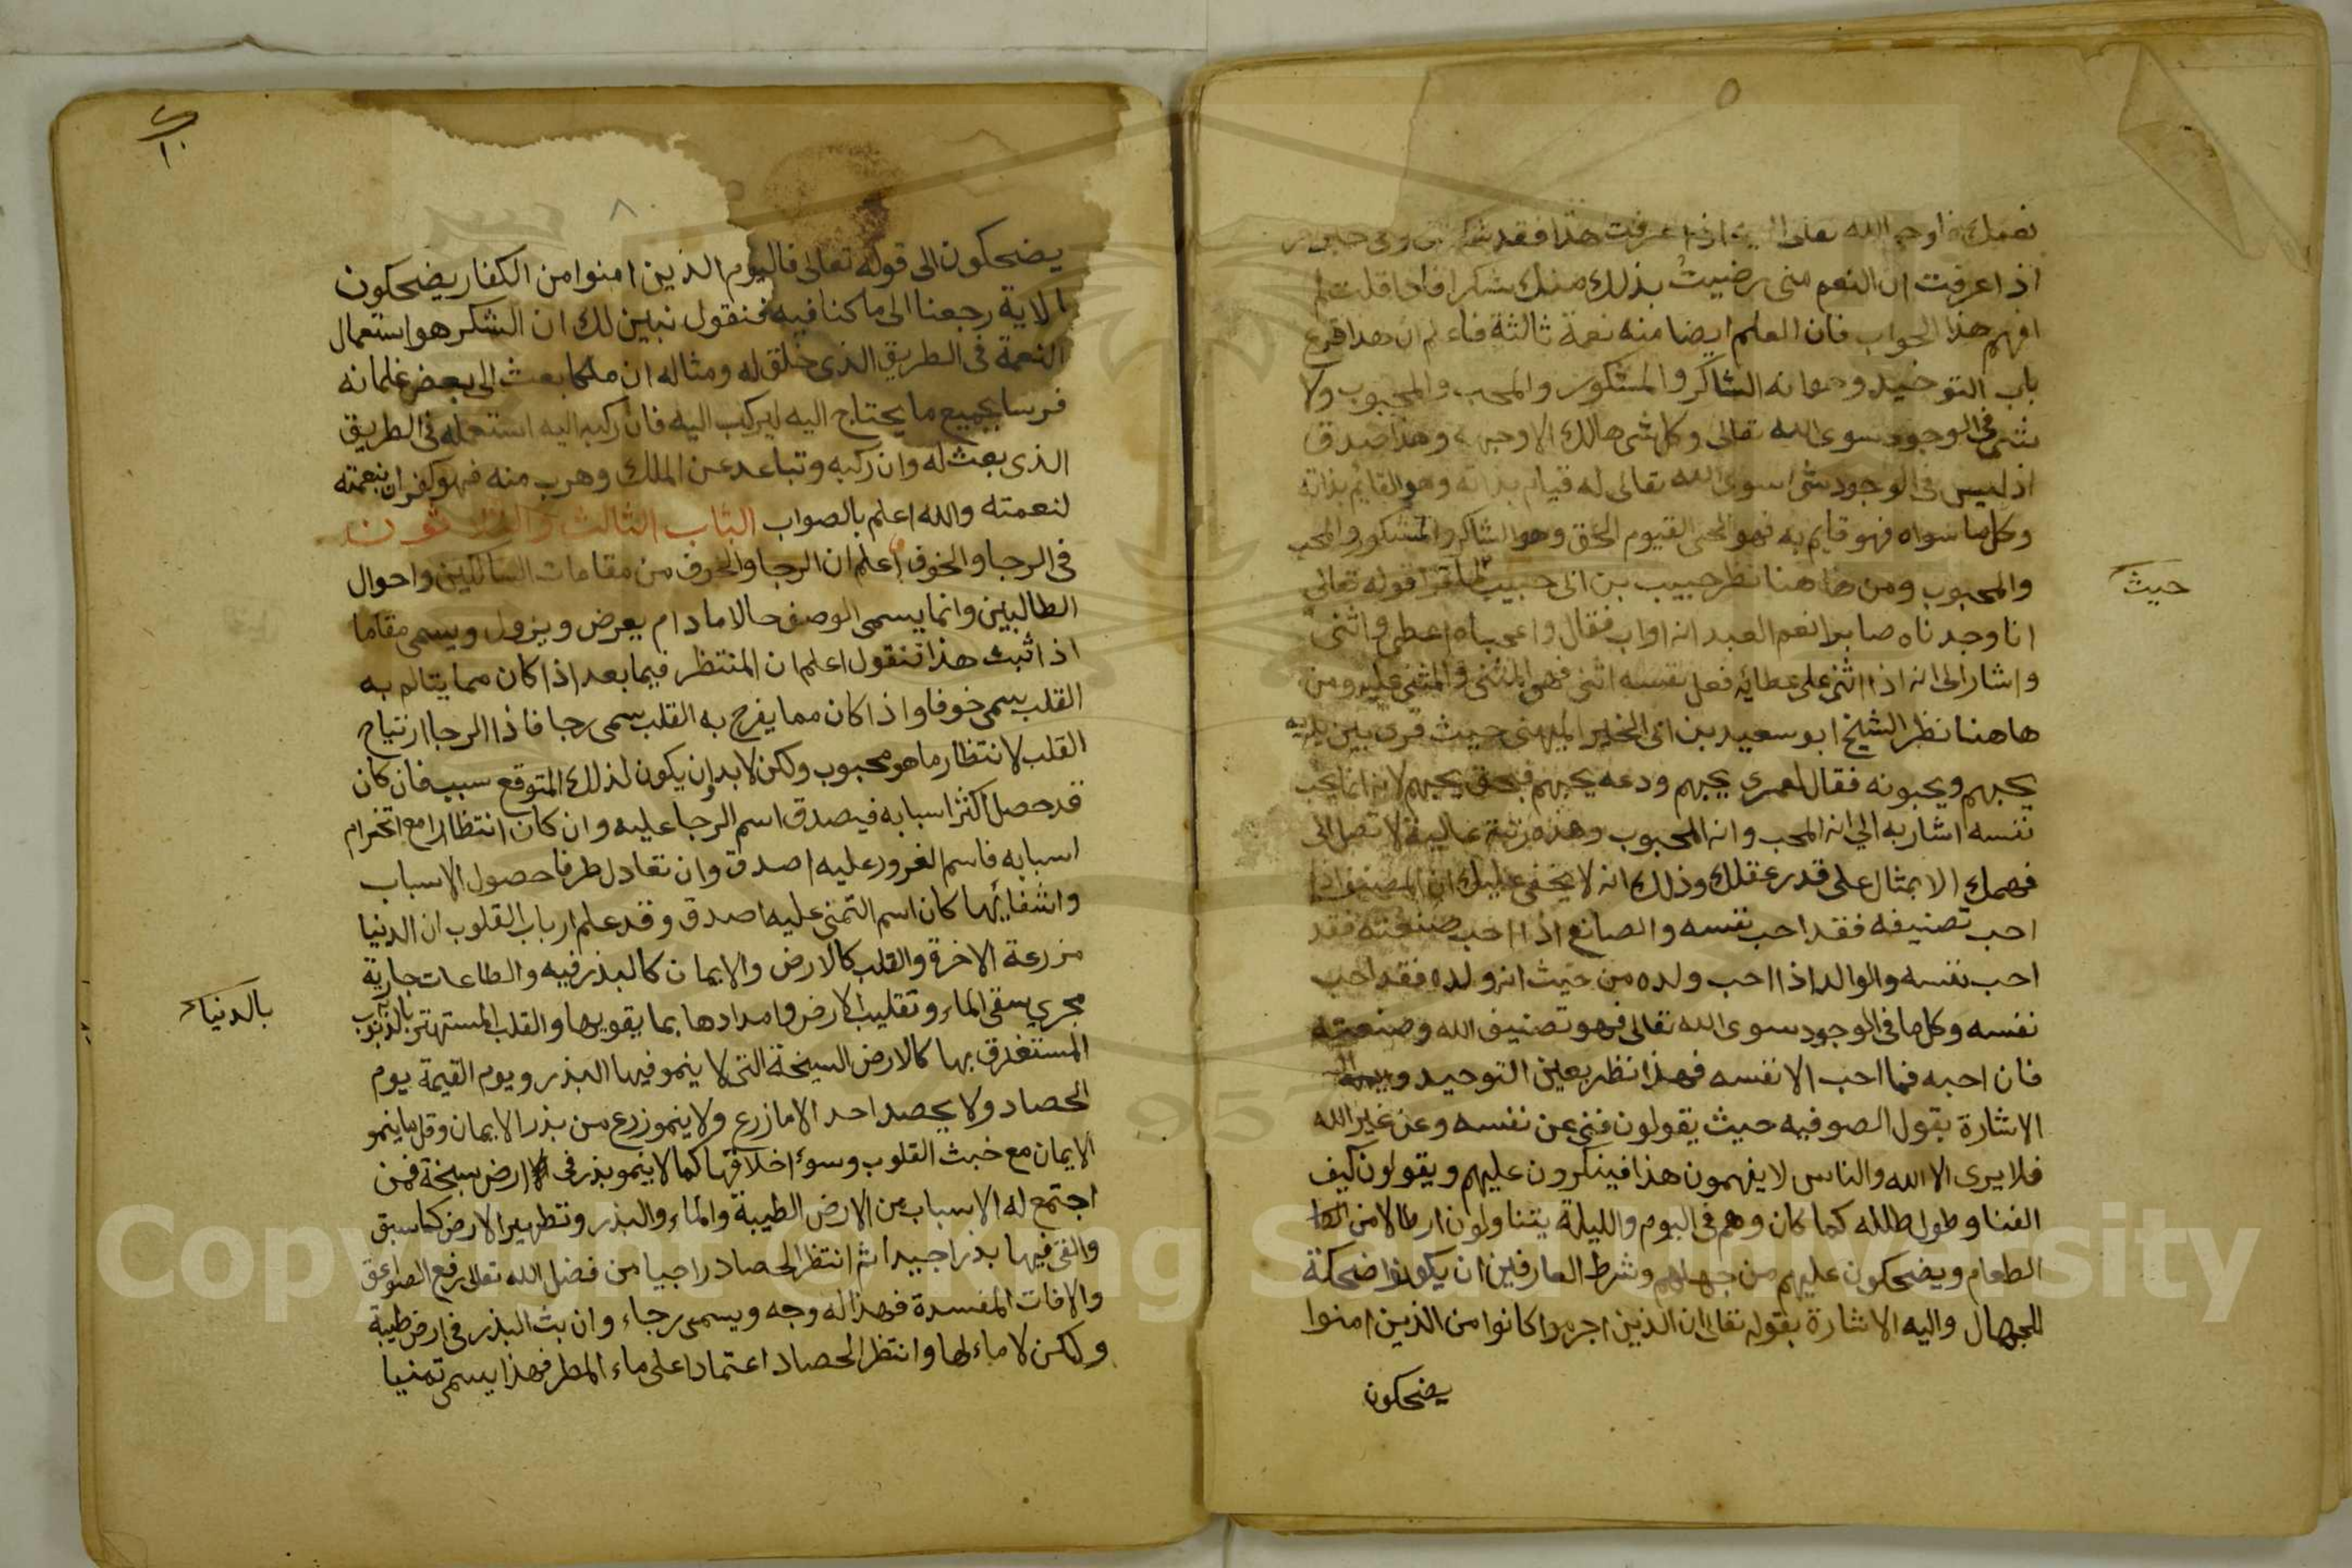 نعمك فاوحى الله تعلى اليه اذا عرفت هذا فقد شكرتني وفي خبر اخر
اذا عرفت ان النعم منى رضيت بذلك منك شكرا فاذا قلت لم
افهم هذا الجواب فان العلم ايضا منه نعمة ثالثة فاعلم ان هذا قرع
باب التوحيد وهوانه الشاكر والمشكور والمحب والمحبوب ولا
شى في الوجود سوى الله تعالى وكل شى هالك الا وجهه وهذا صدق
اذ ليس في الوجود شى سوى الله تعالى له قيام بذاته وهو القايم بذاته
وكل ما سواه فهو قايم به فهو الحى القيوم الحق وهو الشاكر والمشكور والمحب
والمحبوب ومن هاهنا نظر حبيب بن ابى حبيب لما قرا قوله تعالي
حيث
انا وجدناه صابرا نعم العبد انه اواب فقال واعجباه اعطى واثنى
واشار الى انه اذا اثنى على عطائه فعلى نفسه اثنى فهو المثنى والمثنى عليه ومن
هاهنا نظر الشيخ ابو سعيد بن ابى الخير الميهنى حيث قرى بين يديه
يحبهم ويحبونه فقال لعمرى يحبهم ودعه يحبهم فبحق يحبهم لانه انما يحب
نفسه اشار به الي انه المحب وانه المحبوب وهذه رتبة عالية لا تصل الى
فهمك الا بمثال على قدر عقلك وذلك انه لا يخفى عليك ان المصنف اذا
احب تصنيفه فقد احب نفسه والصانع اذا احب صنعته فقد
احب نفسه والوالد اذا احب ولده من حيث انه ولده فقد احب
نفسه وكل ما في الوجود سوى الله تعالى فهو تصنيف الله وصنعته
فان احبه فما احب الا نفسه فهذا نظر بعين التوحيد واليه
الاشارة بقول الصوفيه حيث يقولون فنى عن نفسه وعن غير الله
فلا يرى الا الله والناس لا يفهمون هذا فينكرون عليهم ويقولون كيف
الفنا وطول ظلله كما كان وهم في اليوم والليلة يتناولون ارطالا من
الطعام ويضحكون عليهم من جهلهم وشرط العارفين ان يكونوا ضحكة
للجهال واليه الاشارة بقوله تعالى ان الذين اجرموا كانوا من الذين امنوا
يضحكون
يضحكون الى قوله تعالى فاليوم الذين امنوا من الكفار يضحكون
الاية رجعنا الى ما كنا فيه فنقول نبين لك ان الشكر هو استعمال
النعمة في الطريق الذى خلق له ومثاله ان ملكا بعث الى بعض غلمانه
فرسا بجميع ما يحتاج اليه ليركب اليه فان ركب اليه استعمله في الطريق
الذى بعث له وان ركبه وتباعد عن الملك وهرب منه فهو كفران بنعمته
لنعمته والله اعلم بالصواب الباب الثالث والثلاثون
في الرجا والخوف اعلم ان الرجا والخوف من مقامات السالكين واحوال
الطالبين وانما يسمى الوصف حالا مادام يعرض ويزول ويسمى مقاما
اذا ثبت هذا فنقول اعلم ان المنتظر فيما بعد اذا كان مما يتالم به
القلب سمى خوفا واذا كان مما يفرح به القلب سمى رجا فاذا الرجا ارتياح
القلب لانتظار ما هو محبوب ولكن لا بد وان يكون لذلك المتوقع سبب فان كان
قد حصل اكثر اسبابه فيصدق اسم الرجا عليه وان كان انتظارا مع انخرام
اسبابه فاسم الغرور عليه اصدق وان تعادل طرفا حصول الاسباب
وانتفائها كان اسم التمنى عليه اصدق وقد علم ارباب القلوب ان الدنيا
مزرعة الاخرة والقلب كالارض والايمان كالبذر فيه والطاعات جارية
مجرى سقى الماء وتقليب الارض وامدادها بما يقويها والقلب المستهتر بالذنوب
بالدنياء
المستغرق بها كالارض السبخة التى لا ينمو فيها البذر ويوم القيمة يوم
الحصاد ولا يحصد احد الا ما زرع ولا ينمو زرع من بذر الايمان وقل ما ينمو
الايمان مع خبث القلوب وسوء اخلاقها كما لا ينمو بذر في ارض سبخة فمن
اجتمع له الاسباب من الارض الطيبة والماء والبذر وتطهير الارض كما سبق
والقى فيها بذرا جيدا ثم انتظر الحصاد راجيا من فضل الله تعالى رفع الصواعق
والافات المفسدة فهذا له وجه ويسمى رجاء وان بث البذر في ارض طيبة
ولكن لا ماء لها وانتظر الحصاد اعتمادا على ماء المطر فهذا يسمى تمنيا
Copyright © King Saud University